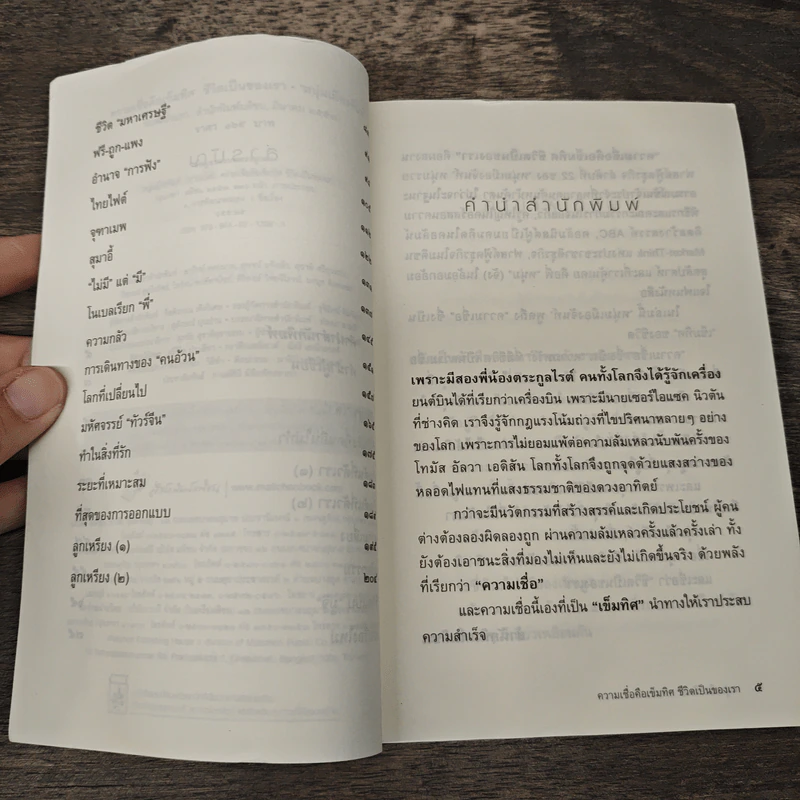 ชีวิต "มหาเศรษฐี"
ฟรี-ถูก-แพง
อำนาจ "การฟัง"
ไทยไฟต์ ๑๐๕
จุฑาเทพ
สุมาอี้
"ไม่มี" แต่ "มี"
โนเบลเรียก "พี่"
ความกลัว
การเดินทางของ "คนอ้วน"
โลกที่เปลี่ยนไป
มหัศจรรย์ "ทัวร์จีน" ๑๖๕
ทำในสิ่งที่รัก ๑๗๕
ระยะที่เหมาะสม
ที่สุดของการออกแบบ
ลูกเหรียง (๑) ๑๙๕
ลูกเหรียง (๒) ๒๐๔
คำนำสำนักพิมพ์
เพราะมีสองพี่น้องตระกูลไรต์ คนทั้งโลกจึงได้รู้จักเครื่อง
ยนต์บินได้ที่เรียกว่าเครื่องบิน เพราะมีนายเซอร์ไอแซค นิวตัน
ที่ช่างคิด เราจึงรู้จักกฎแรงโน้มถ่วงที่ไขปริศนาหลายๆ อย่าง
ของโลก เพราะการไม่ยอมแพ้ต่อความล้มเหลวนับพันครั้งของ
โทมัส อัลวา เอดิสัน โลกทั้งโลกจึงถูกจุดด้วยแสงสว่างของ
หลอดไฟแทนที่แสงธรรมชาติของดวงอาทิตย์
กว่าจะมีนวัตกรรมที่สร้างสรรค์และเกิดประโยชน์ ผู้คน
ต่างต้องลองผิดลองถูก ผ่านความล้มเหลวครั้งแล้วครั้งเล่า ทั้ง
ยังต้องเอาชนะสิ่งที่มองไม่เห็นและยังไม่เกิดขึ้นจริง ด้วยพลัง
ที่เรียกว่า "ความเชื่อ"
และความเชื่อนี้เองที่เป็น "เข็มทิศ" นำทางให้เราประสบ
ความสำเร็จ
ความเชื่อคือเข็มทิศ ชีวิตเป็นของเรา ๕